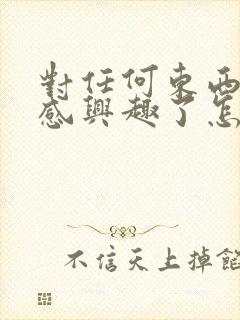 對任何東西
感興趣了怎
不信天上掉餡